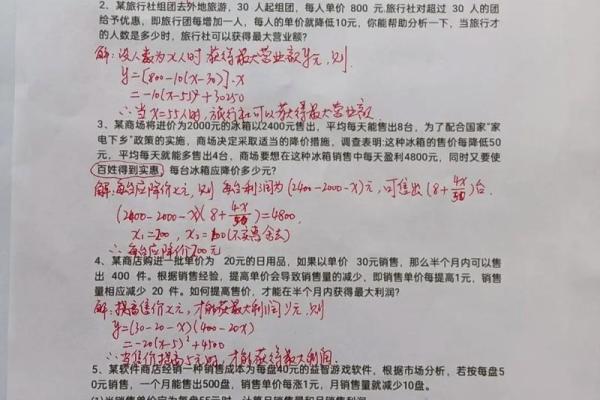 2、某旅行社组团去外地旅游，30 人起组团，每人单价 800 元.旅行社对超过 30 人的团
给予优惠，即旅行团每增加一人，每人的单价就降低10元，你能帮助分析一下，当旅行才
的人数是多少时，旅行社可以获得最大营业额?
解：设人数为x人时 获得最大营业额y元，则
y=[800-10(x-30)]·x
=-10(x-55)²+30250
∴当x=55人时，旅行社可以获得最大营业额
3、某商场将进价为2000元的冰箱以2400元售出，平均每天能售出8台，为了配合国家“家
电下乡”政策的实施，商场决定采取适当的降价措施，调查表明:这种冰箱的售价每降低50
元，平均每天就能多售出4台，商场要想在这种冰箱销售中每天盈利4800元，同时又要使
百姓得到实惠，每台冰箱应降价多少元?
解：每台应降价x元，则 每台利润为(2400-2000-x)元，可售出(8+4x/50)台.
(2400-2000-x)(8+4x/50)=4800
x₁=200，x₂=100(不实惠舍去)
∴每台应降价200元
4、某商店购进一批单价为 20元的日用品，如果以单价 30元销售，那么半个月内可以售
出 400 件。根据销售经验，提高单价会导致销售量的减少，即销售单价每提高1元，销售
量相应减少 20 件。如何提高售价，才能在半个月内获得最大利润?
解：提高售价x元，才能获最大利润y元，则
y=(30-20-x)(400-20x)
=-20(x-5)²+4500
∴当售价提高5元时，才能获得最大利润.
5、某软件商店经销一种销售成本为每盘40元的益智游戏软件，根据市场分析，若按每盘5
0元销售，一个月能售出500盘，销售单价每涨1元，月销售量就减少10盘。
(1)当销售单价定为每盘55元时，计算月销售量和月销售利润